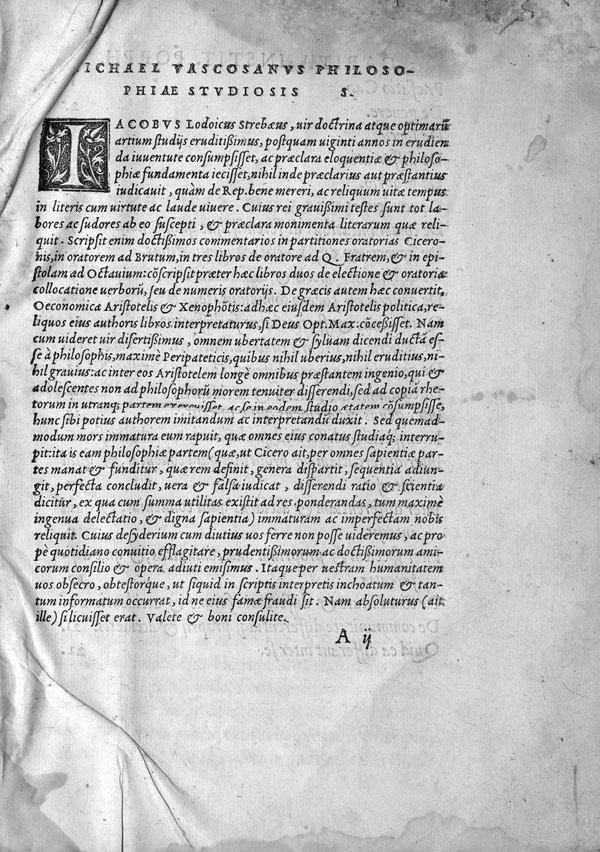 MICHAEL VASCOSANVS PHILOSO-
PHIAE STVDIOSIS S.
IACOBVS Lodoicus Strebæus, uir doctrina atque optimarū
artium studijs eruditißimus, postquam uiginti annos in erudien
da iuuentute consumpsisset, ac præclara eloquentiæ & philoso-
phiæ fundamenta iecisset, nihil inde præclarius aut præstantius
iudicauit, quàm de Rep. bene mereri, ac reliquum uitæ tempus
in literis cum uirtute ac laude uiuere. Cuius rei grauißimi testes sunt tot la-
bores ac sudores ab eo suscepti, & præclara monimenta literarum quæ reli-
quit. Scripsit enim doctißimos commentarios in partitiones oratorias Cicero-
nis, in oratorem ad Brutum, in tres libros de oratore ad Q. Fratrem, & in epi-
stolam ad Octauium: cōscripsit præter hæc libros duos de electione & oratoria
collocatione uerborū, seu de numeris oratorijs. De græcis autem hæc conuertit,
Oeconomica Aristotelis & Xenophōtis: adhæc eiusdem Aristotelis politica, re-
liquos eius authoris libros interpretaturus, si Deus Opt. Max: cōceßisset. Nam
cum uideret uir disertißimus, omnem ubertatem & syluam dicendi ductā es-
se à philosophis, maximè Peripateticis, quibus nihil uberius, nihil eruditius, ni-
hil grauius: ac inter eos Aristotelem longè omnibus præstantem ingenio, qui &
adolescentes non ad philosophorū morem tenuiter disserendi, sed ad copiā rhe-
torum in utranq; partem exercuisset, ac se in eodem studio ætatem cōsumpsisse,
hunc sibi potius authorem imitandum ac interpretandū duxit. Sed quemad-
modum mors immatura eum rapuit, quæ omnes eius conatus studiaq; interru-
pit: ita is eam philosophiæ partem (quæ, ut Cicero ait, per omnes sapientiæ par-
tes manat & funditur, quæ rem definit, genera dispartit, sequentia adiun-
git, perfecta concludit, uera & falsa iudicat, disserendi ratio & scientia
dicitur, ex qua cum summa utilitas existit ad res ponderandas, tum maximè
ingenua delectatio, & digna sapientia) immaturam ac imperfectam nobis
reliquit. Cuius desyderium cum diutius uos ferre non posse uideremus, ac pro
pè quotidiano conuitio efflagitare, prudentißimorum ac doctißimorum ami-
corum consilio & opera adiuti emisimus. Itaque per uestram humanitatem
uos obsecro, obtestorq́ue, ut siquid in scriptis interpretis inchoatum & tan-
tum informatum occurrat, id ne eius famæ fraudi sit. Nam absoluturus (ait
ille) si licuisset erat. Valete & boni consulite.
A ij